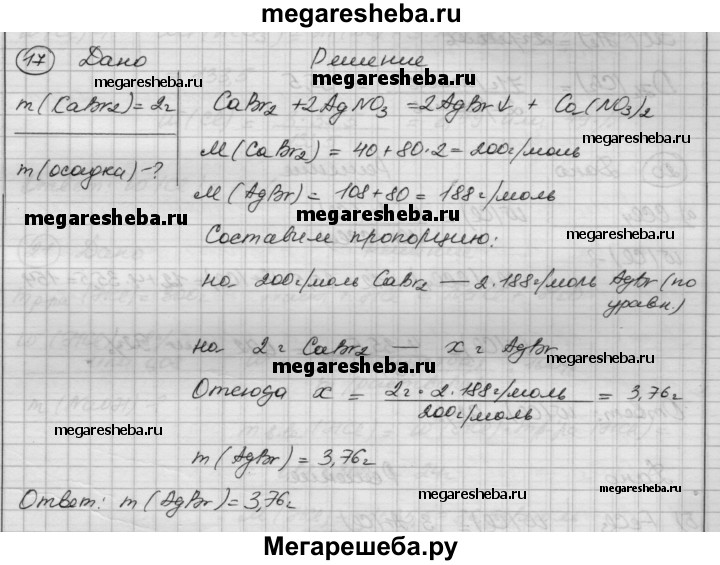 megaresheba.ru
17 Дано Решение
megaresheba.ru megaresheba.ru
m(CaBr₂)=2г CaBr₂ + 2AgNO₃ = 2AgBr↓ + Ca(NO₃)₂
megaresheba.ru
M(CaBr₂) = 40+80·2 = 200г/моль
m(осадка)-?
M(AgBr) = 108+80 = 188г/моль
megaresheba.ru
Составим пропорцию: megaresheba.ru
на 200г/моль CaBr₂ — 2·188г/моль AgBr (по
уравн.)
megaresheba.ru
на 2г CaBr₂ — x г AgBr
megaresheba.ru
Отсюда x = 2г·2·188г/моль / 200г/моль = 3,76г
megaresheba.ru
m(AgBr) = 3,76г
megaresheba.ru
Ответ: m(AgBr)=3,76г megaresheba.ru
megaresheba.ru
Мегарешеба.ру